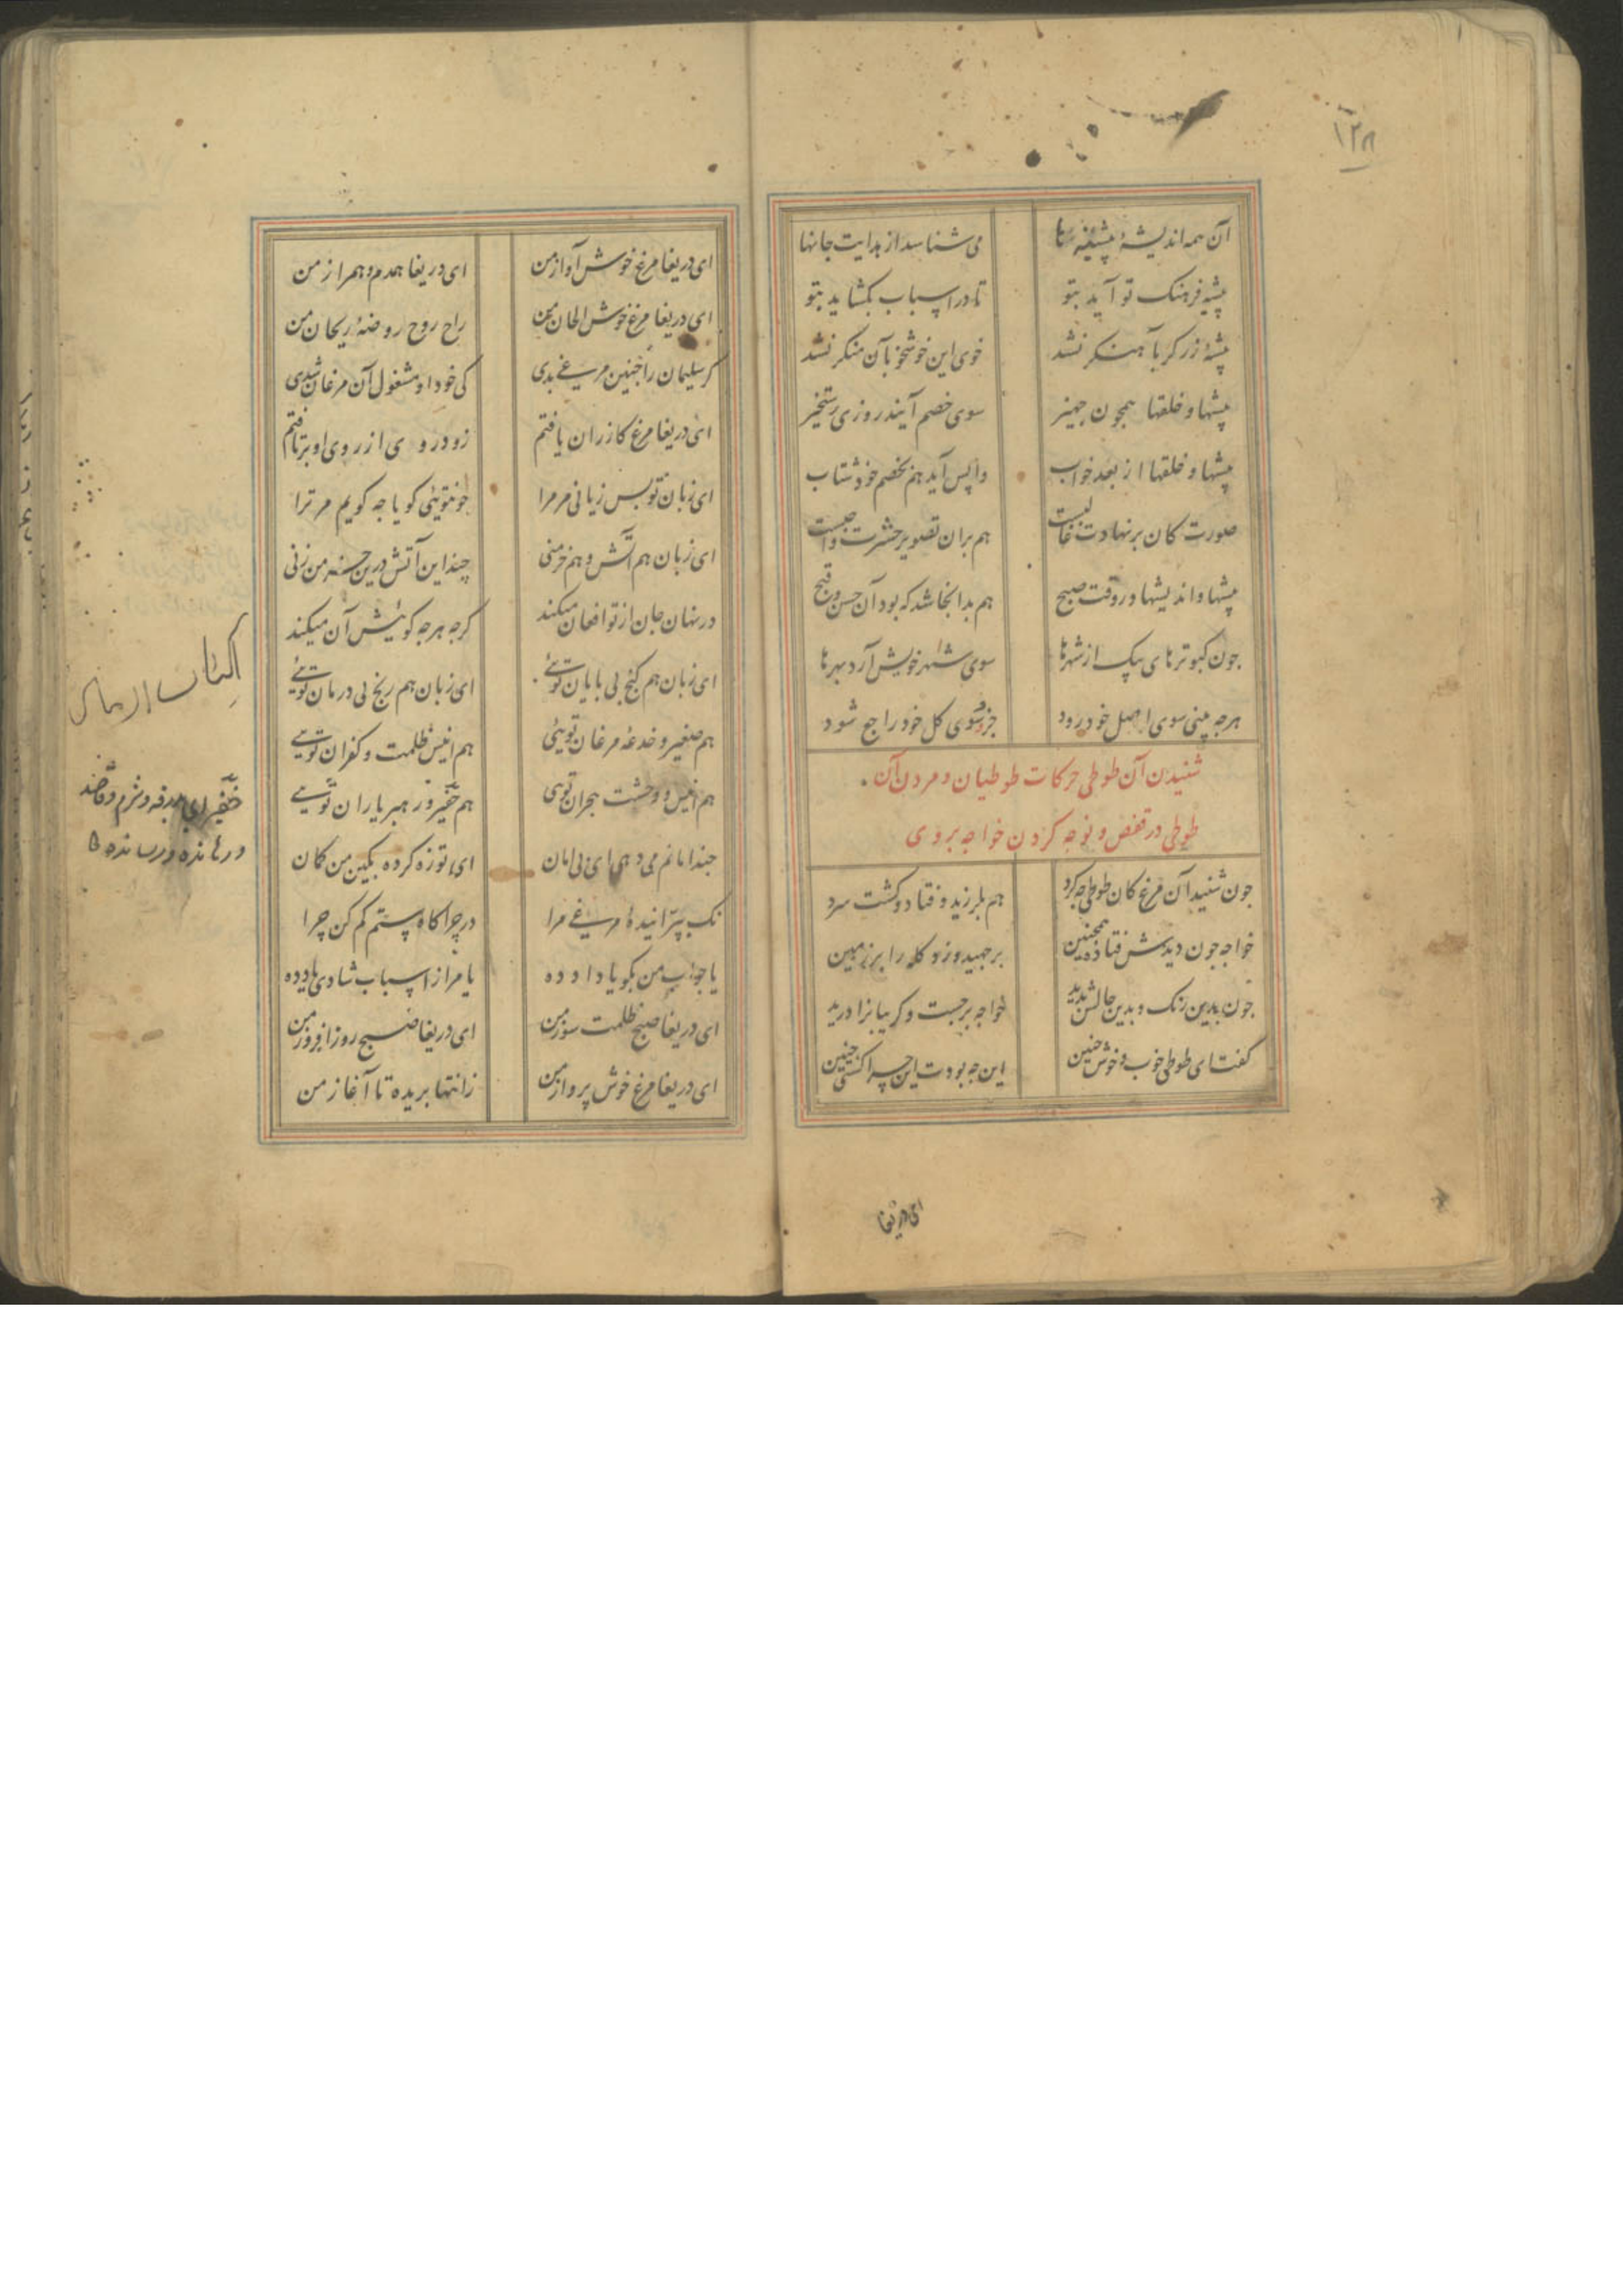 ۱۲۸
آن همه اندیشهٔ پیشینه‌ها می‌شناسد از بدایت جانها
پیشه و فرهنک تو آید بتو تا در اسباب بکشاید بتو
پیشهٔ زرکر بآهنکر نشد خوی این خوشخو بآن منکر نشد
پیشها و خلقها همچون جهیز سوی خصم آیند روزی رستخیز
پیشها و خلقها از بعد خواب واپس آید هم بخصم خود شتاب
صورت کان بر نهادت غالبست هم بران تصویر حشرت واجبست
پیشها و اندیشها در وقت صبح هم بدانجا شد که بود آن حسن و قبح
جون کبوترهای پیک از شهرها سوی شهر خویش آرد بهرها
هرجه بینی سوی اصل خود رود جزو سوی کل خود راجع شود
شنیدن آن طوطی حرکات طوطیان و مردن آن
طوطی در قفص و نوحه کردن خواجه بر وی
جون شنید آن مرغ کان طوطی جه کرد هم بلرزید و فتاد و کشت سرد
خواجه جون دیدش فتاده همچنین بر جهید و زد کله را بر زمین
جون بدین رنک و بدین حالش بدید خواجه بر جست و کریبانرا درید
کفت ای طوطی خوب و خوش حنین این جه بودت این چرا کشتی چنین
ای دریغا
ای دریغا مرغ خوش آواز من ای دریغا همدم و همراز من
ای دریغا مرغ خوش الحان من راح روح روضهٔ ریحان من
کر سلیمان را جنین مرغی بدی کی خود او مشغول آن مرغان شدی
ای دریغا مرغ کارزان یافتم زود روی از روی او بر تافتم
ای زبان تو بس زیانی مر مرا جون تویئی کویا جه کویم مر ترا
ای زبان هم آتش و هم خرمنی چند این آتش درین خرمن زنی
در نهان جان از تو افغان میکند کرجه هرجه کوئیش آن میکند
ای زبان هم کنج بی پایان توئی ای زبان هم رنج بی درمان توئی
هم صفیر و خدعه مرغان تویئی هم انیس ظلمت و کفران توئی
هم انیس و وحشت هجران تویی هم خفیر و رهبر یاران توئی
جند امانم می‌دهی ای بی امان ای تو زه کرده بکین من کمان
نک بپرانیدهٔ مرغی مرا در چراکاه ستم کم کن چرا
یا جواب من بکو یا داد ده یا مرا از اسباب شادی یاد ده
ای دریغا صبح ظلمت سوز من ای دریغا صبح روز افروز من
ای دریغا مرغ خوش پرواز من ز انتها بریده تا آغاز من
خفیر ای بدرقه
و رهاننده و رساننده